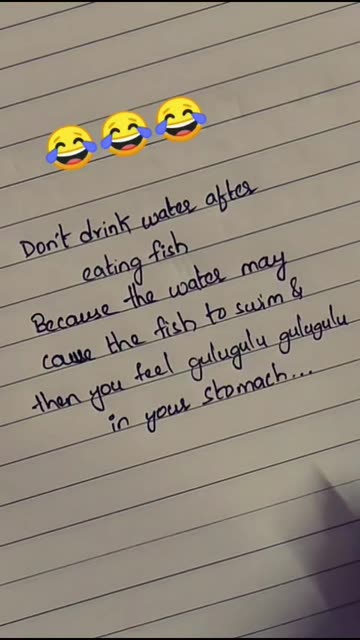 Don't drink water after
eating fish
Because the water may
cause the fish to swim &
then you feel gulugulu gulugulu
in your stomach...